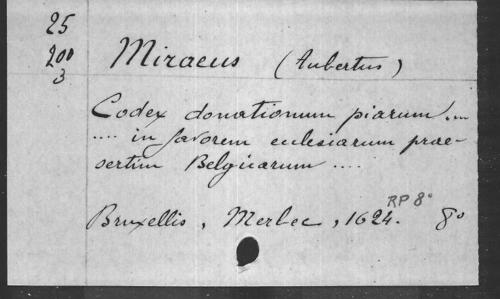 25
200
3
Miraeus (Aubertus)
Codex donationum piarum ....
.... in favorem ecclesiarum prae-
sertim Belgicarum ....
RP 8°
Bruxellis, Merbec, 1624. 8°